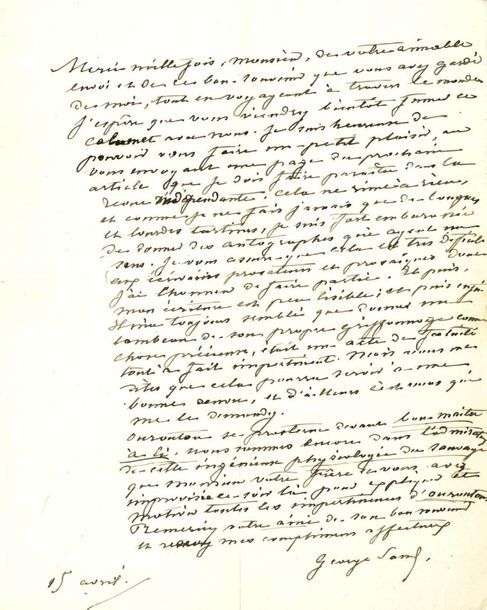 Merci mille fois, monsieur, de votre aimable
envoi et de ce bon souvenir que vous avez gardé
de moi, tout en voyageant à travers le monde.
J'espère que vous viendrez bientôt fumer ce
calumet avec nous. Je suis heureuse de
pouvoir vous faire un petit plaisir, en
vous envoyant une page du prochain
article que je dois faire paraitre dans la
revue indépendante. cela ne rime à rien,
et comme je ne fais jamais que de longues
et lourdes tartines, je suis fort embarrassée
de donner des autographes qui ayent un
sens. Je vous assure que cela est très difficile
aux écrivains prosateurs et prosaïques dont
j'ai l'honneur de faire partie. Et puis,
mon écriture est peu lisible; et puis enfin
il m'a toujours semblé que donner un
lambeau de son propre griffonage comme
chose précieuse, était un acte de fatuité
tout à fait impertinent. Mais vous me
dites que cela pourra servir à une
bonne œuvre, et d'ailleurs c'est vous qui
me le demandez.
se prosterne devant bon maître
à li. nous sommes encore dans l'admiration
de cette ingénieuse physiologie du sauvage
que monsieur votre frère avec
improvisée pour expliquer et
motiver toutes les impertinences d'
Remerciez votre aîné de son bon souvenir
et recevez mes compliments affectueux
George Sand.
15 avril.